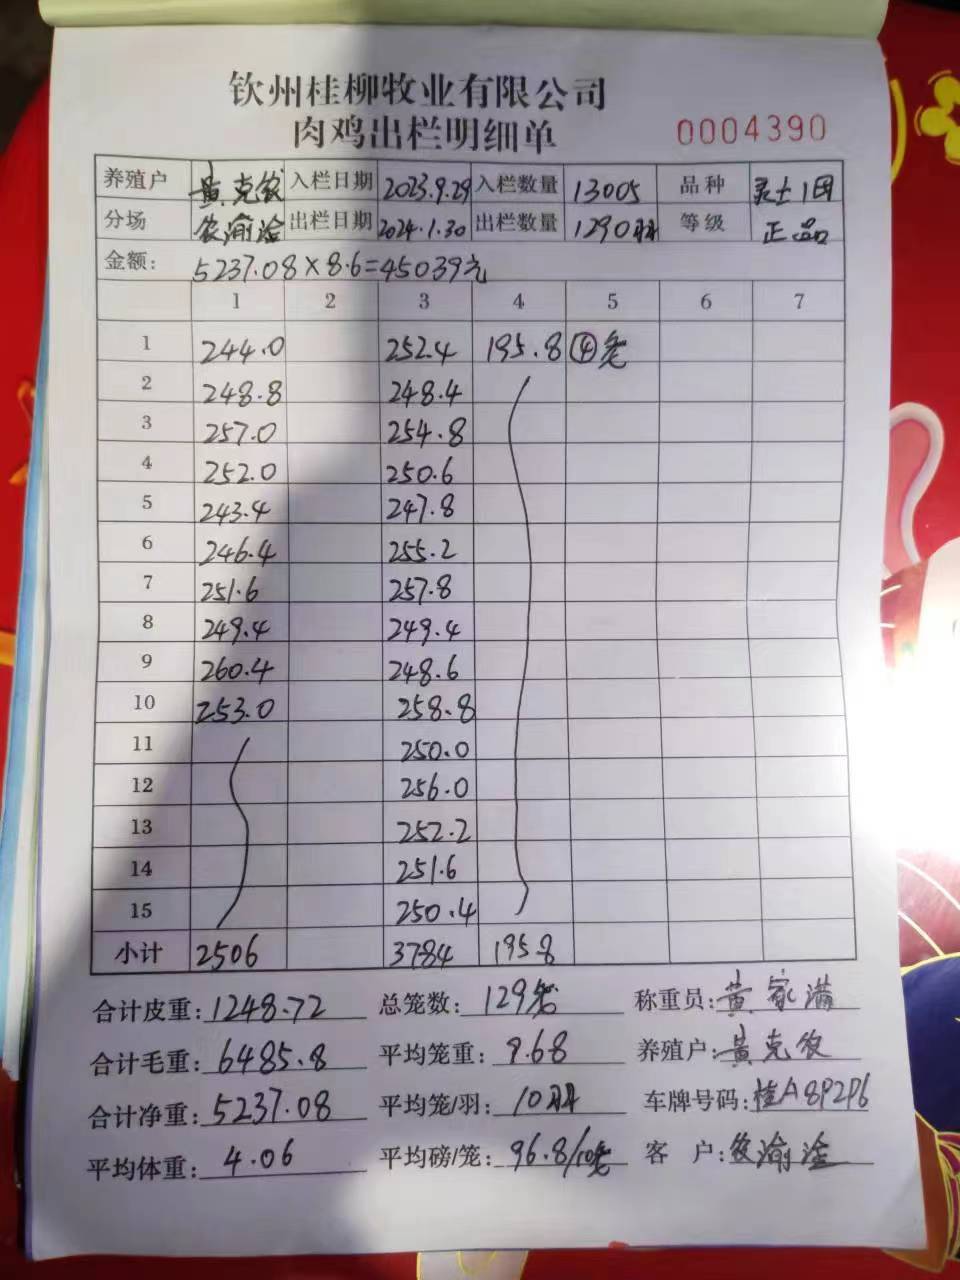 钦州桂柳牧业有限公司
肉鸡出栏明细单 0004390
养殖户 黄克农 入栏日期 2023.9.29 入栏数量 13005 品种 灵土1国
分场 农渝淦 出栏日期 2024.1.30 出栏数量 1290羽 等级 正品
金额: 5237.08×8.6=45039元
1 2 3 4 5 6 7
1 244.0 252.4 195.8 ④笼
2 248.8 248.4
3 257.0 254.8
4 252.0 250.6
5 243.4 247.8
6 246.4 255.2
7 251.6 257.8
8 249.4 249.4
9 260.4 248.6
10 253.0 258.8
11 250.0
12 256.0
13 252.2
14 251.6
15 250.4
小计 2506 3784 195.8
合计皮重: 1248.72 总笼数: 129笼 称重员: 黄家满
合计毛重: 6485.8 平均笼重: 9.68 养殖户: 黄克农
合计净重: 5237.08 平均笼/羽: 10羽 车牌号码: 桂A8P2P6
平均体重: 4.06 平均磅/笼: 96.8/10笼 客户: 农渝淦